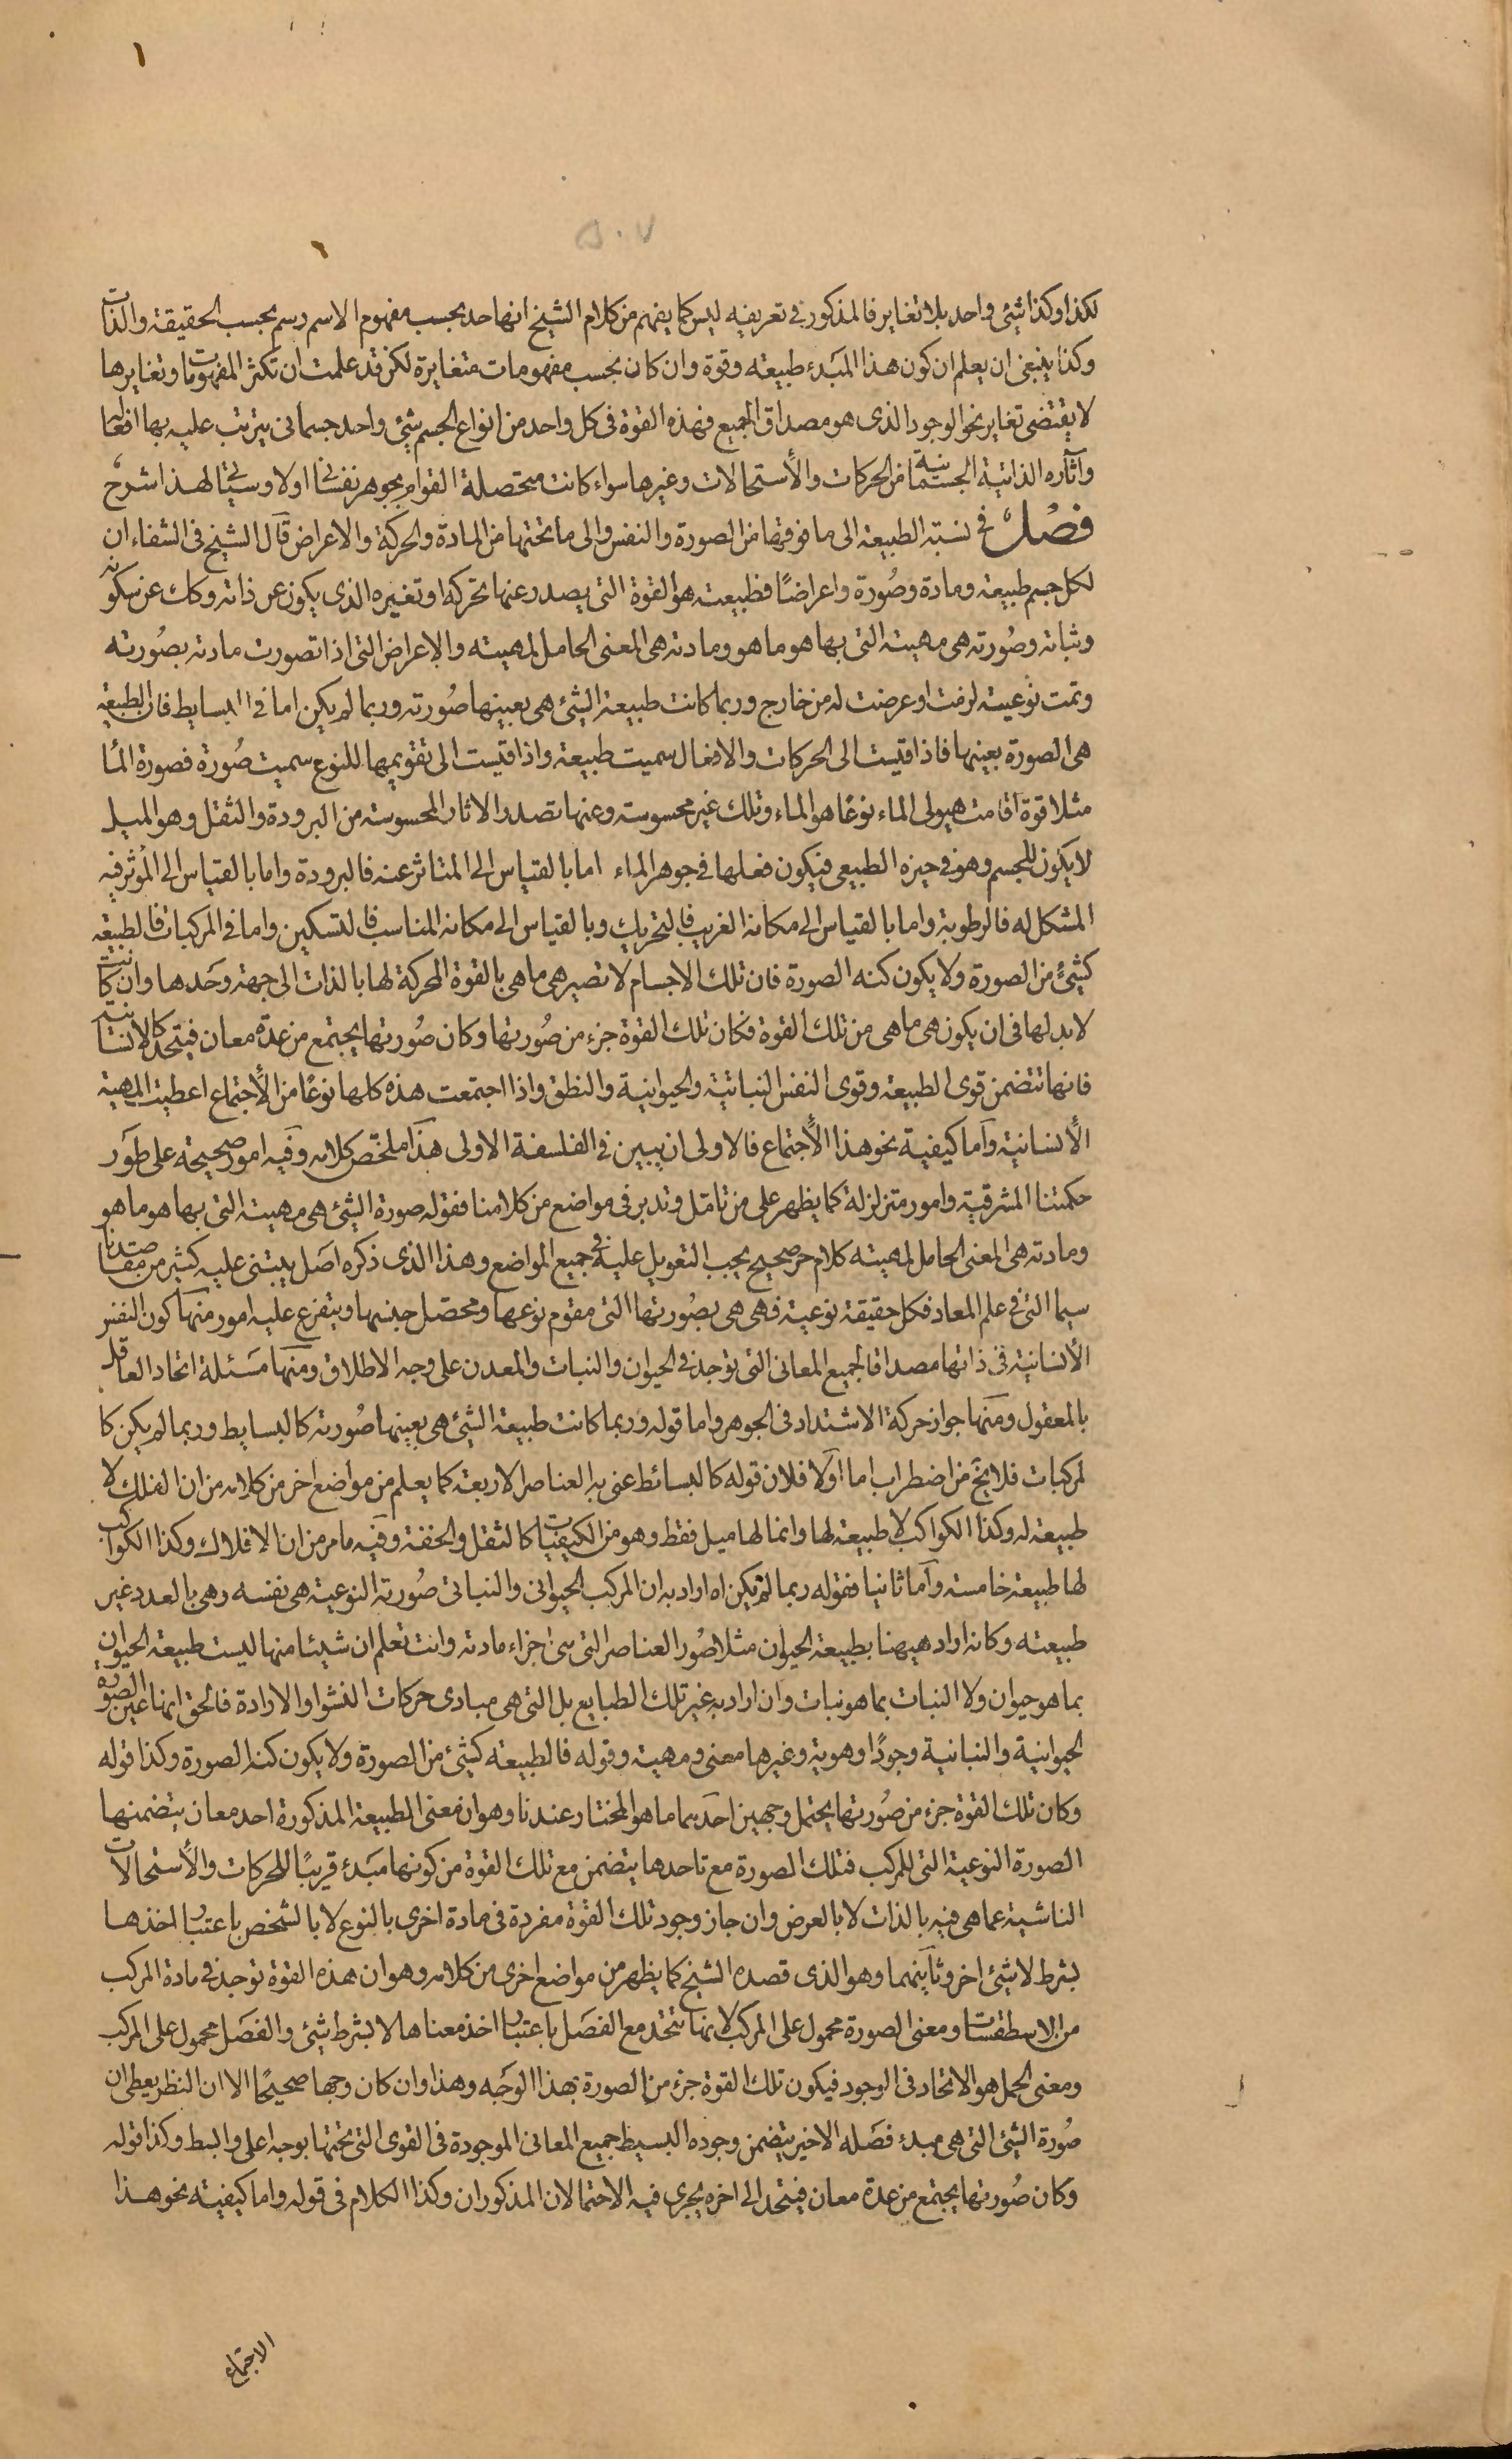 ١
٥٠٧
لكذا وكذا شئ واحد بلا تغاير فالمذكور في تعريفه ليس كما يفهم من كلام الشيخ انها حد بحسب مفهوم الاسم رسم بحسب الحقيقة والذات
وكذا ينبغى ان يعلم ان كون هذا المبدء طبيعته وقوة وان كان بحسب مفهومات متغايرة لكن قد علمت ان تكثر المفهومات وتغايرها
لا يقتضى تغاير نحو الوجود الذى هو مصداق الجميع فهذه القوة فى كل واحد من انواع الجسم شئ واحد جسمانى يترتب عليه بها افعالها
وآثاره الذاتية الجسمانية من الحركات والأستحالات وغيرها سواء كانت متحصلة القوام بجوهر نفسانى اولا وسيأتى لهذا شرح
فصل فى نسبة الطبيعة الى ما فوقها من الصورة والنفس والى ما تحتها من المادة والحركة والاعراض قال الشيخ فى الشفاء ان
لكل جسم طبيعة ومادة وصورة واعراضًا فطبيعته هو القوة التى يصدر عنها تحركه او تغيره الذى يكون عن ذاته وكك عن سكونه
وثباته وصورته هى مهيته التى بها هو ما هو ومادته هى المعنى الحامل لمهيته والاعراض التى اذا تصورت مادته بصورته
وتمت نوعيته لزمت او عرضت له من خارج وربما كانت طبيعة الشئ هى بعينها صورته وربما لم يكن اما فى البسايط فان الطبيعة
هى الصورة بعينها فاذا قيست الى الحركات والافعال سميت طبيعة واذا قيست الى تقويمها للنوع سميت صورة فصورة الماء
مثلا قوة اقامت هيولى الماء نوعًا هو الماء وتلك غير محسوسة وعنها تصدر الاثار المحسوسة من البرودة والثقل وهو الميل
لا يكون للجسم وهو فى حيزه الطبيعى فيكون فعلها فى جوهر الماء اما بالقياس الى المتاثر عنه فالبرودة واما بالقياس الى المؤثر فيه
المشكل له فالرطوبة واما بالقياس الى مكانه الغريب فالتحريك وبالقياس الى مكانه المناسب فالتسكين واما فى المركبات فالطبيعة
كشئٍ من الصورة ولا يكون كنه الصورة فان تلك الاجسام لا تصير هى ما هى بالقوة المحركة لها بالذات الى جهة وحدها وان كانت
لا بد لها فى ان يكون هى ما هى من تلك القوة فكان تلك القوة جزء من صورتها وكان صورتها يجتمع من عدة معان فيتحد كالانسانية
فانها تتضمن قوى الطبيعة وقوى النفس النباتية والحيوانية والنطق واذا اجتمعت هذه كلها نوعًا من الأجتماع اعطيت المهية
الأنسانية وآما كيفية نحو هذا الأجتماع فالاولى ان يبين فى الفلسفة الاولى هذا ملخص كلامه وفيه امور صحيحة على طور
حكمتنا المشرقية وامور متزلزلة كما يظهر على من تامل وتدبر فى مواضع من كلامنا فقوله صورة الشئ هى مهيته التى بها هو ما هو
ومادته هى المعنى الحامل لمهيته كلام حق صحيح يجب التعويل عليه فى جميع المواضع وهذا الذى ذكره اصل يبتنى عليه كثير من مقاصدنا
سيما التى فى علم المعاد فكل حقيقة نوعية فهى هى بصورتها التى مقوم نوعها ومحصل جنسها ويتفرع عليه امور منها كون النفس
الأنسانية فى ذاتها مصداقا لجميع المعانى التى توجد فى الحيوان والنبات والمعدن على وجه الاطلاق ومنها مسئلة اتحاد العاقل
بالمعقول ومنها جواز حركة الاشتداد فى الجوهر واما قوله وربما كانت طبيعة الشئ هى بعينها صورته كالبسايط وربما لم يكن كا
لمركبات فلا يخ من اضطراب اما اولا فلان قوله كالبسائط عنى به العناصر الاربعة كما يعلم من مواضع اخر من كلامه من ان الفلك لا
طبيعة له وكذا الكواكب لا طبيعة لها وانما لها ميل فقط وهو من الكيفيات كالثقل والخفة وفيه ما مر من ان الافلاك وكذا الكواكب
لها طبيعة خامسة وآما ثانيا فقوله ربما لم يكن اه اراد به ان المركب الحيوانى والنباتى صورته النوعية هى نفسه وهى بالعدد غير
طبيعته وكانه اراد هيهنا بطبيعة الحيوان مثلا صور العناصر التى هى اجزاء مادته وانت تعلم ان شيئا منها ليست طبيعة الحيوان
بما هو حيوان ولا النبات بما هو نبات وان اراد به غير تلك الطبايع بل التى هى مبادى حركات النشو او الارادة فالحق انها عين الصورة
الحيوانية والنباتية وجودًا وهوية وغيرها معنى ومهية وقوله فالطبيعة كشئ من الصورة ولا يكون كنه الصورة وكذا قوله
وكان تلك القوة جزء من صورتها يحتمل وجهين احدهما ما هو المختار عندنا وهو ان معنى الطبيعة المذكورة احد معان يتضمنها
الصورة النوعية التى للمركب فتلك الصورة مع تاحدها يتضمن مع تلك القوة من كونها مبدء قريبًا للحركات والأستحالات
الناشية عما هى فيه بالذات لا بالعرض وان جاز وجود تلك القوة مفردة فى مادة اخرى بالنوع لا بالشخص باعتبار اخذها
بشرط لا شئ اخر وثآنيهما وهو الذى قصده الشيخ كما يظهر من مواضع اخرى من كلامه وهو ان هذه القوة توجد فى مادة المركب
من الاسطقسات ومعنى الصورة محمول على المركب لانها تتحد مع الفصل باعتبار اخذ معناها لا بشرط شئ والفصل محمول على المركب
ومعنى الحمل هو الاتحاد فى الوجود فيكون تلك القوة جزء من الصورة بهذا الوجه وهذا وان كان وجها صحيحًا الا ان النظر يعطى ان
صورة الشئ التى هى مبدء فصله الاخير يتضمن وجوده البسيط جميع المعانى الموجودة فى القوى التى تحتها بوجه اعلى وابسط وكذا قوله
وكان صورتها يجتمع من عدة معان فيتحد الى اخره يجرى فيه الاحتمالان المذكوران وكذا الكلام فى قوله واما كيفية نحو هذا
الاجتماع